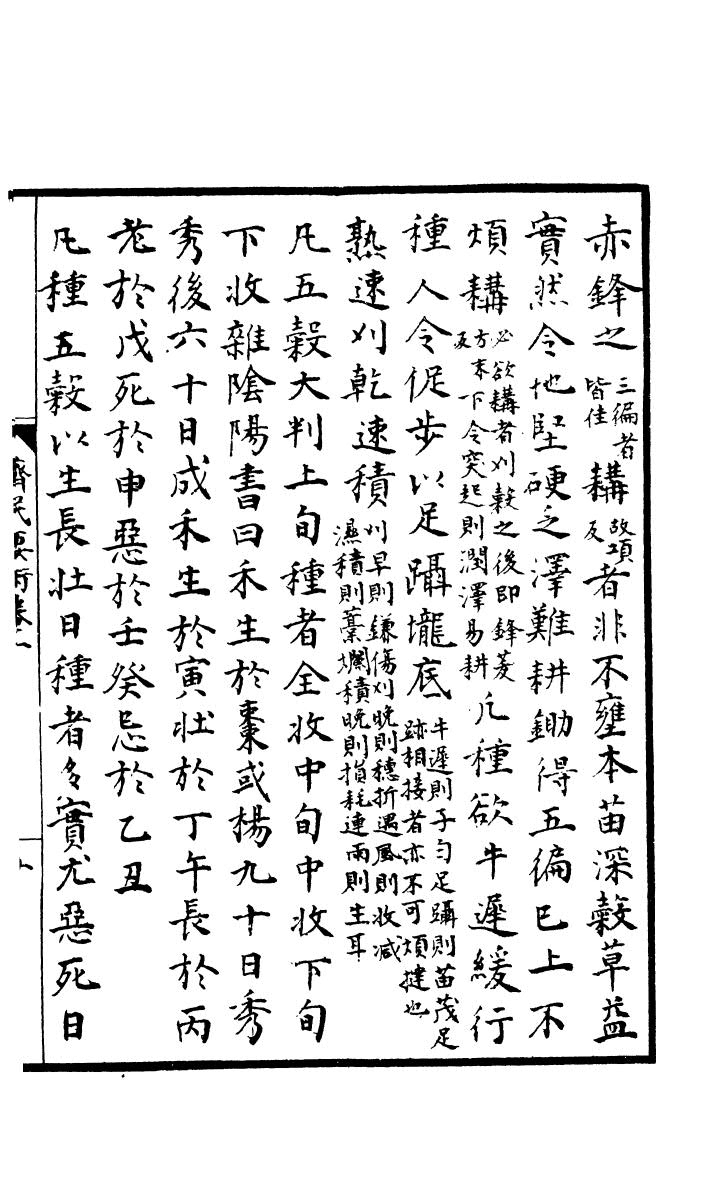 赤鋒之三徧者皆佳耩故項反者非不壅本苗深穀草益
實然令地堅硬乏澤難耕鋤得五徧已上不
煩耩必欲耩者刈穀之後即鋒茇方末下令突起則潤澤易耕反凡種欲牛遲緩行
種人令促步以足躡壠底牛遲則子勻足躡則苗茂足跡相接者亦不可煩撻也
熟速刈乾速積刈早則鎌傷刈晚則穗折遇風則收减濕積則藁爛積晚則損耗連雨則生耳
凡五穀大判上旬種者全收中旬中收下旬
下收雜隂陽書曰禾生於棗或楊九十日秀
秀後六十日成禾生於寅壮於丁午長於丙
老於戊死於申惡於壬癸忌於乙丑
凡種五榖以生長壮日種者多實尤惡死日
齊民要術卷